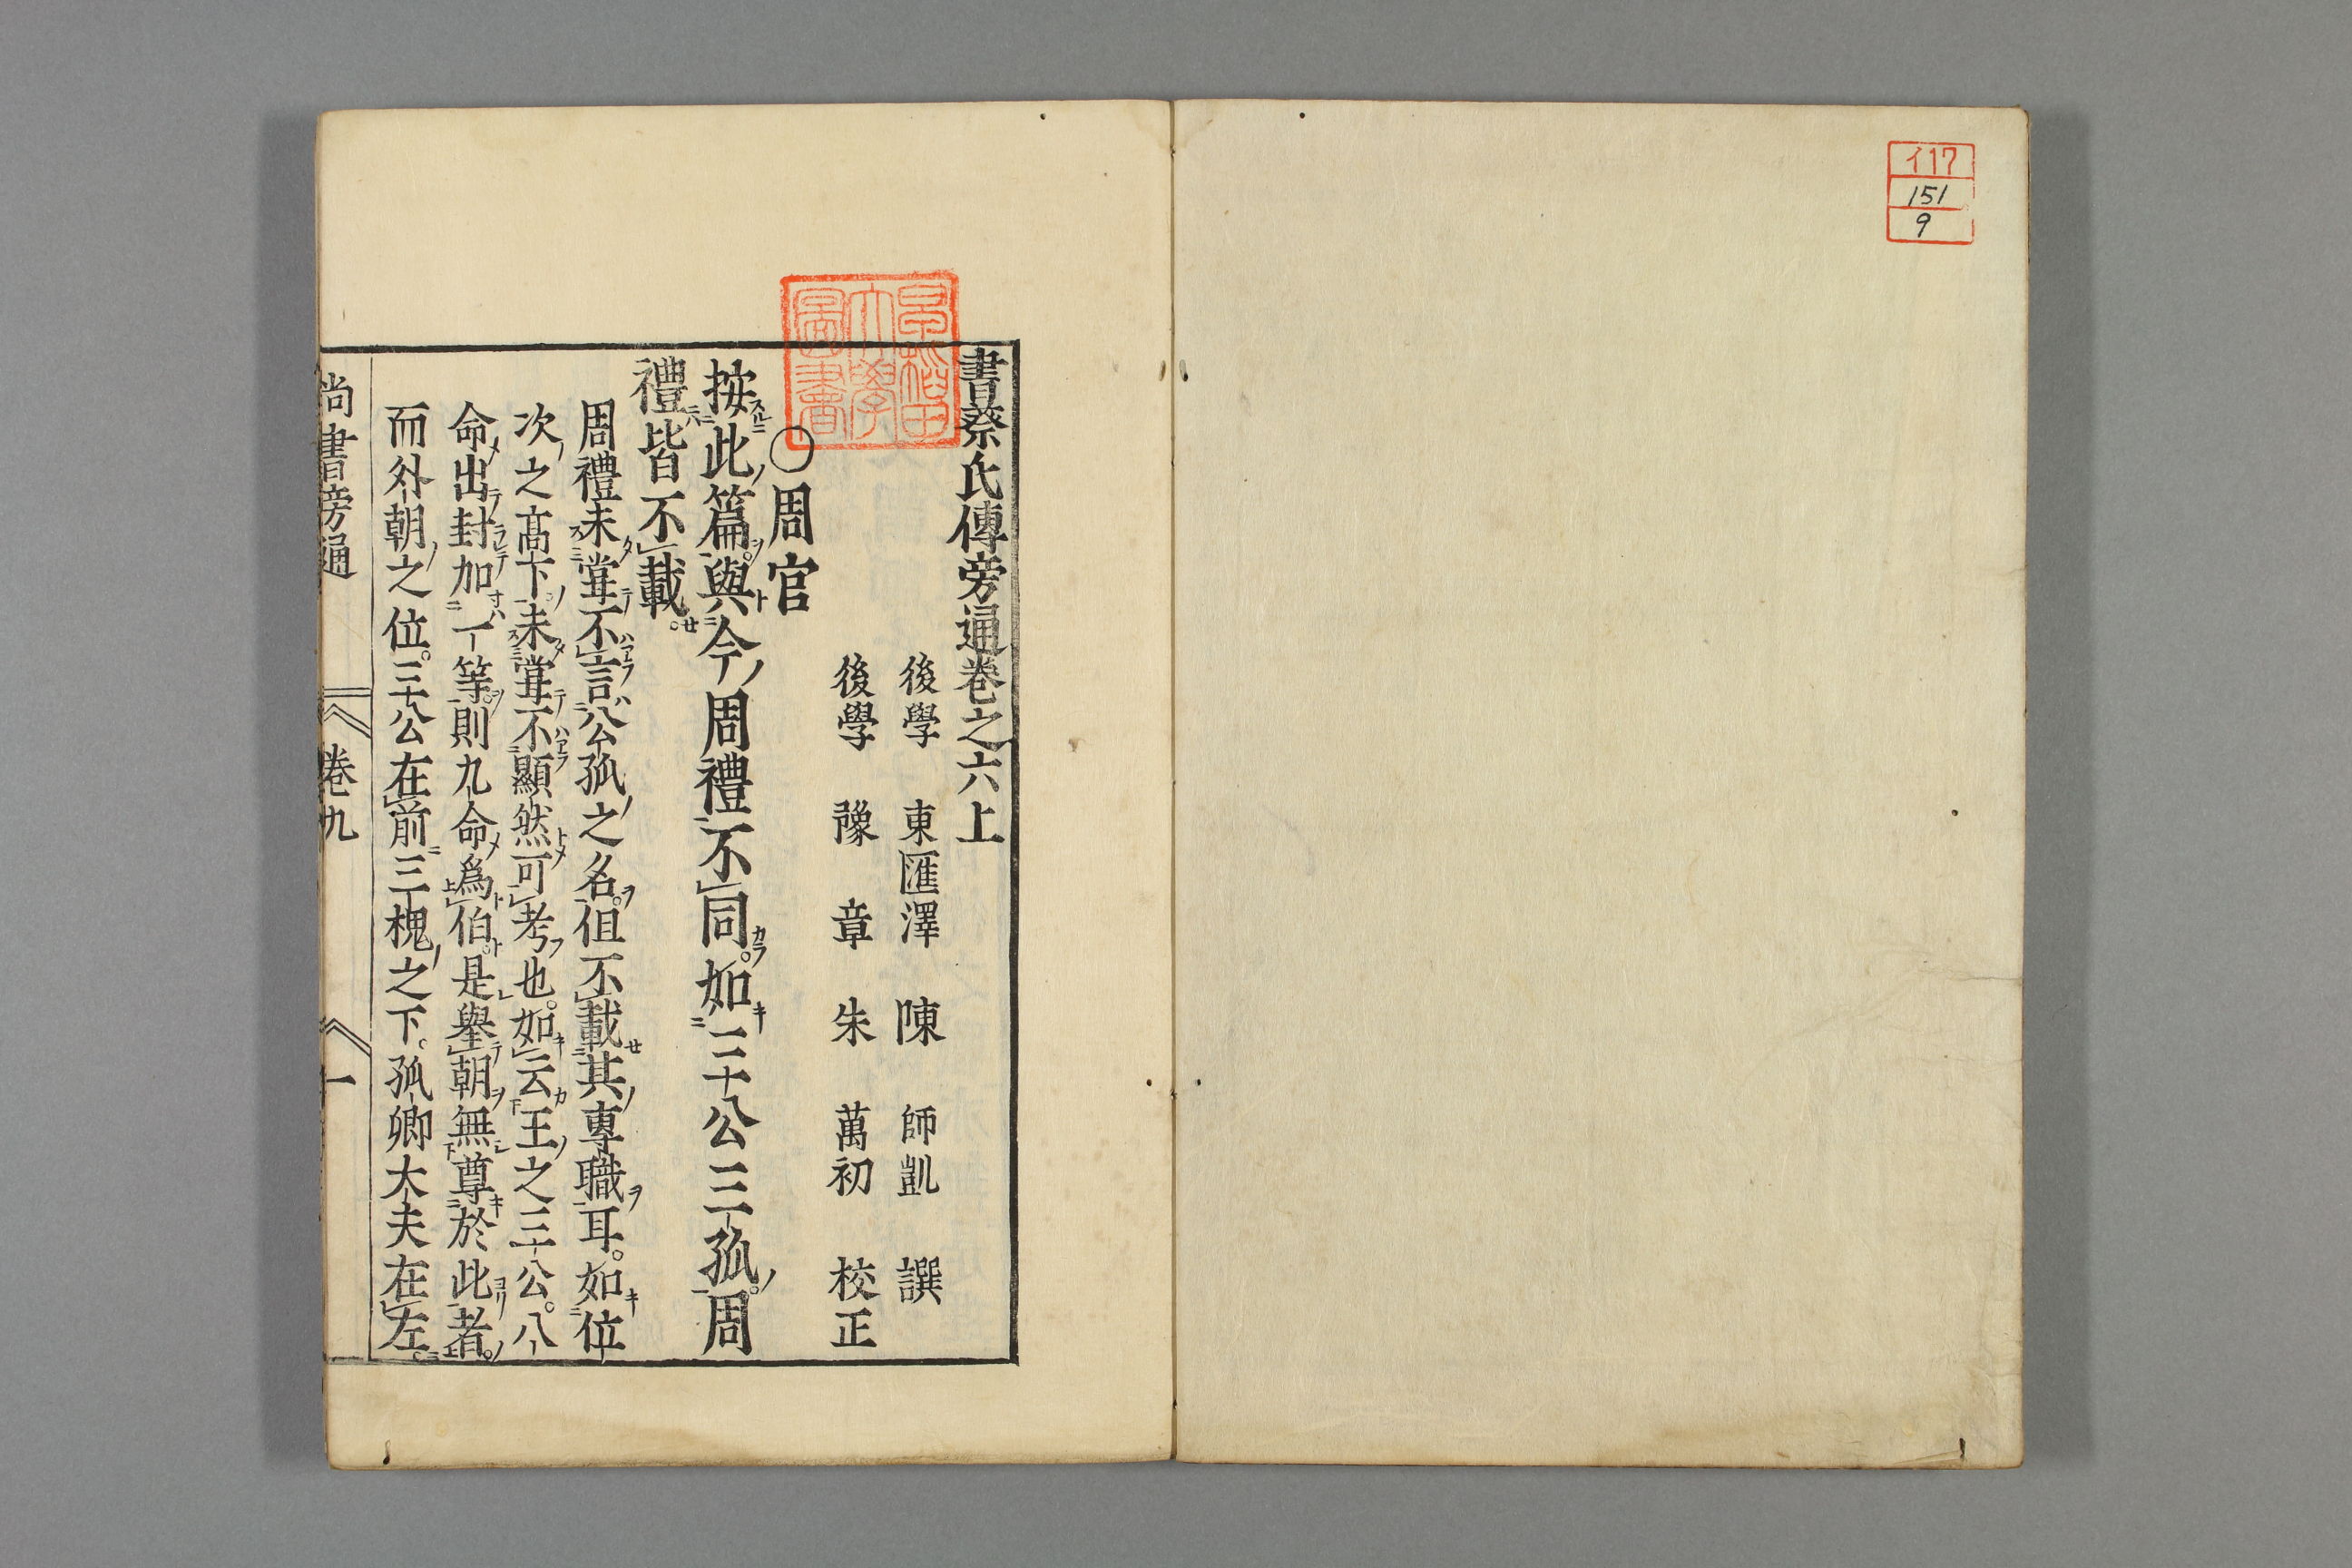 イ17
151
9
早稲田大學圖書
書蔡氏傳旁通卷之六上
後學 東匯澤 陳 師凱 譔
後學 豫 章 朱 萬初 校正
○周官
按此篇與今周禮不同如三公三孤周
禮皆不載
周禮未甞不言公孤之名但不載其專職耳如位
次之髙下未甞不顯然可考也如云王之三公八
命出封加一等則九命爲伯是舉朝無尊於此者
而外朝之位三公在前三槐之下孤卿大夫在左
尚書旁通 卷九 一